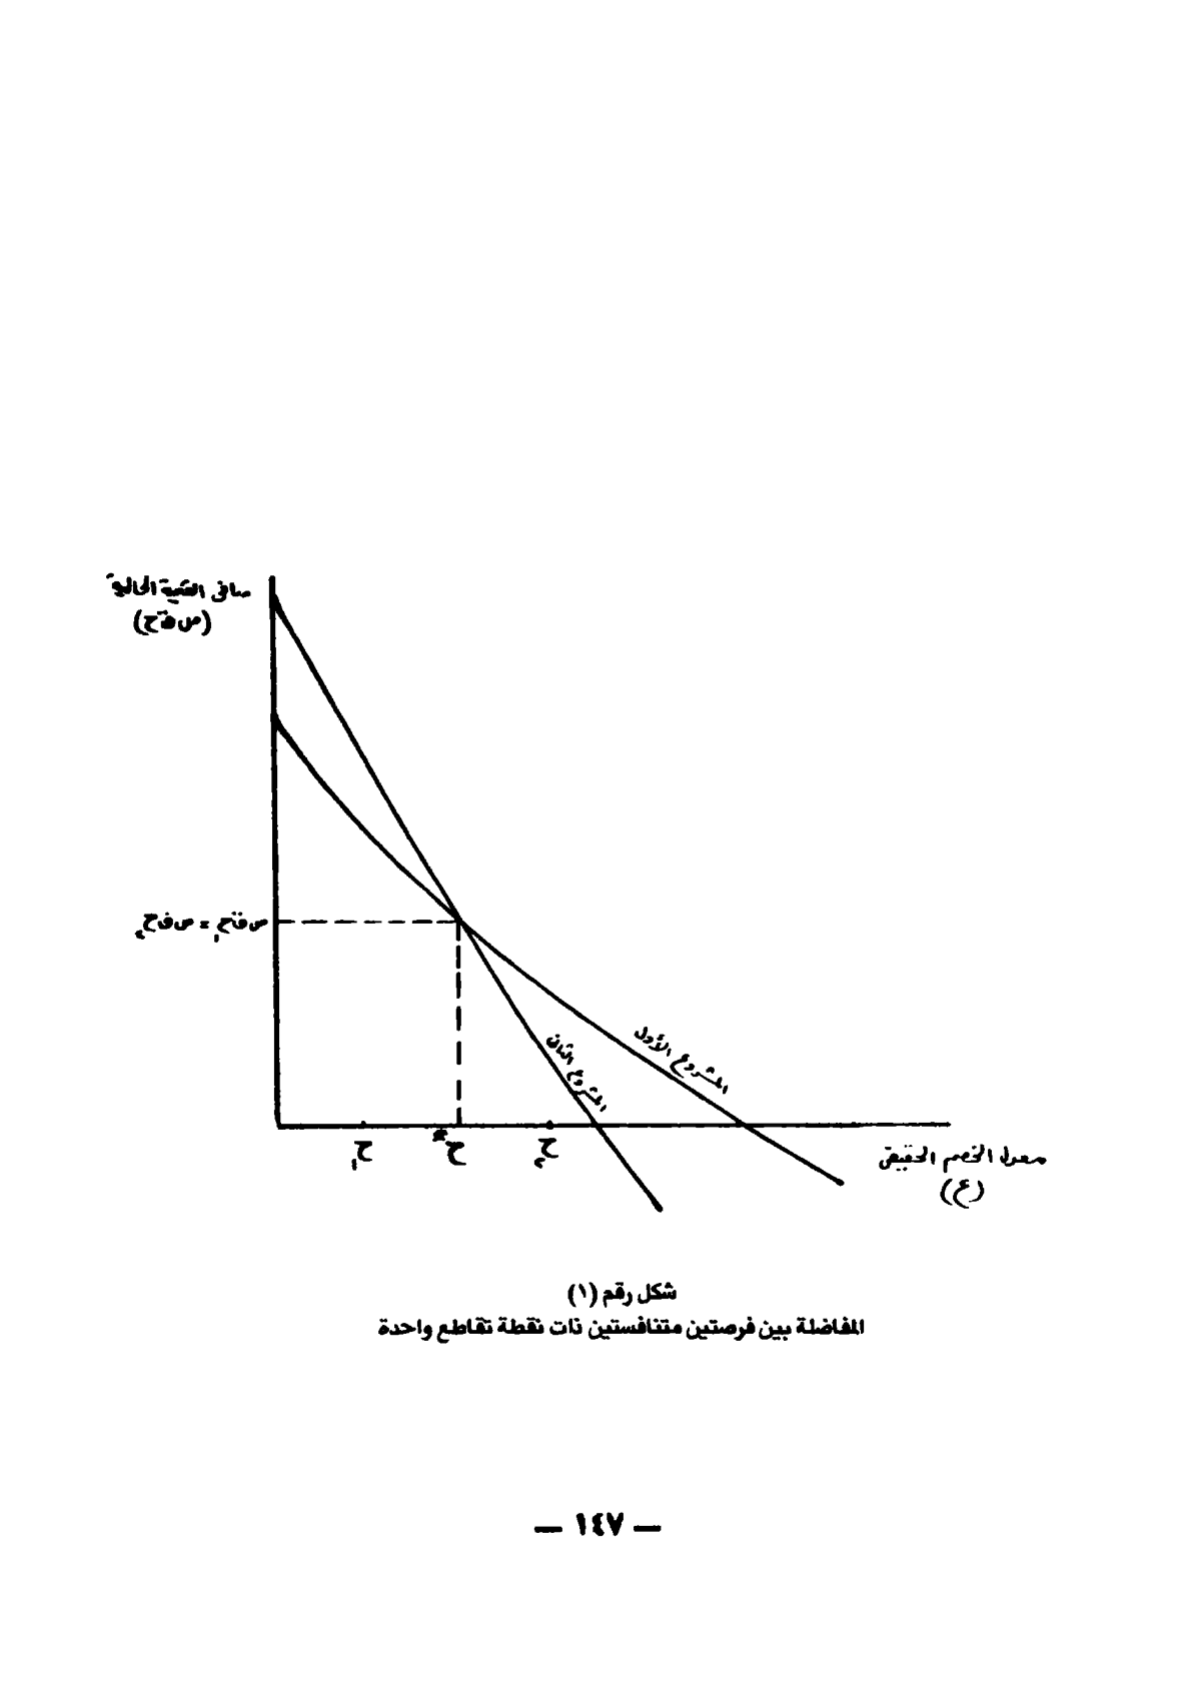 صافى القيمة الحالية
(ص ق ح)
ص ق ح١ = ص ق ح٢
المشروع الأول
المشروع الثان
ح١
ح*
ح٢
معدل الخصم الحقيقى
(ع)
شكل رقم (١)
المفاضلة بين فرصتين متنافستين ذات نقطة تقاطع واحدة
— ١٤٧ —